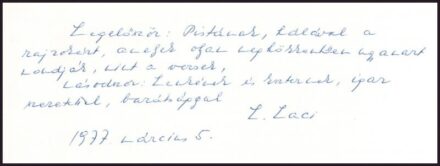 Legelőször: Pistának, hálával a
rajzokért, amelyek olyan megdöbbentően ugyanazt
mondják, mint a versek,
másodszor: Lucának és Eszternek, igaz
szeretettel, barátsággal
L. Laci
1977 március 5.